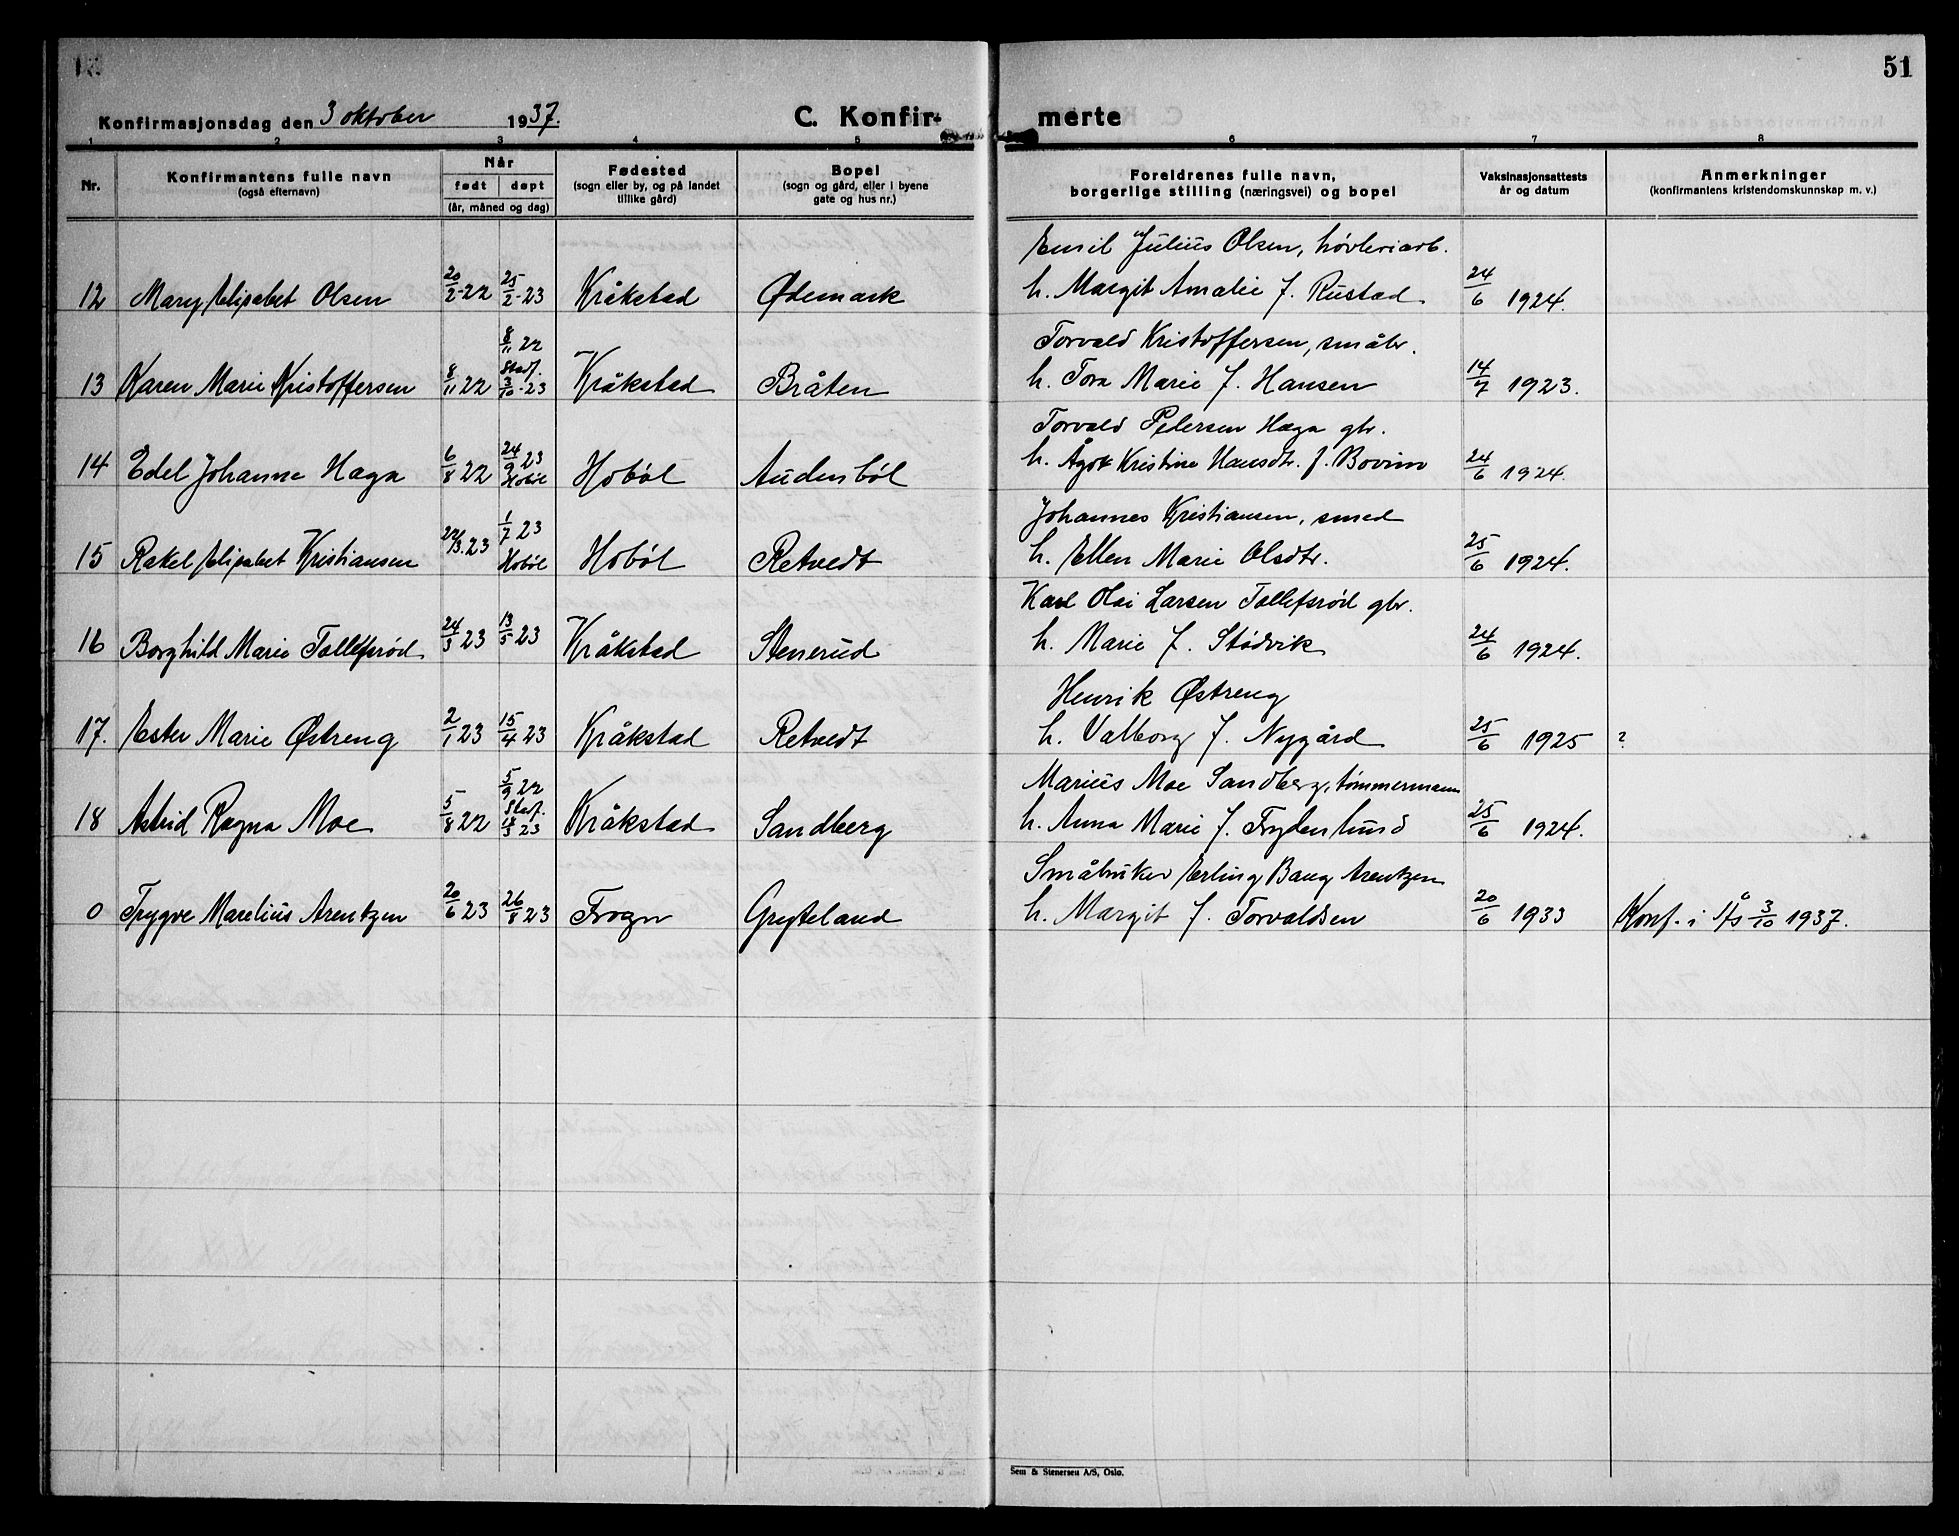 51
Konfirmasjonsdag den 3 oktober 1937.
C. Konfir-
merte
1 2 3 4 5 6 7 8
Nr.
Konfirmantens fulle navn
(også efternavn)
Når
født døpt
(år, måned og dag)
Fødested
(sogn eller by, og på landet
tillike gård)
Bopel
(sogn og gård, eller i byene
gate og hus nr.)
Foreldrenes fulle navn,
borgerlige stilling (næringsvei) og bopel
Vaksinasjonsattests
år og datum
Anmerkninger
(konfirmantens kristendomskunnskap m. v.)
Emil Julius Olsen, høvleriarb.
12 Mary Elisabet Olsen 20/2-22 25/2-23 Kråkstad Ødemark h. Margit Amalie f. Rustad 24/6 1924.
8/11 22 Torvald Kristoffersen, småbr.
Stadf.
13 Karen Marie Kristoffersen 8/11 22 3/10-23 Kråkstad Bråten h. Tora Marie f. Hansen 14/7 1923.
Torvald Pedersen Haga gbr.
14 Edel Johanne Haga 6/8 22 24/9 23 Hobøl Hobøl Audenbøl h. Ågot Kristine Hansdtr. f. Bovim 24/6 1924.
Johannes Kristiansen, smed
15 Rakel Elisabet Kristiansen 22/3.23 1/7 23 Hobøl Hobøl Retvedt h. Ellen Marie Olsdtr. 25/6 1924.
Karl Olai Larsen Tollefsrød gbr.
16 Borghild Marie Tollefsrød 24/3 23 13/5 23 Kråkstad Stenerud h. Marie f. Stødvik 24/6 1924.
Henrik Østreng
17. Ester Marie Østreng 2/1 23 15/4 23 Kråkstad Retvedt h. Valborg f. Nygård 25/6 1925 ?
5/9 22 Marius Moe Sandberg, tømmermann
Stadf.
18 Astrid Ragna Moe 5/8 22 18/3 23 Kråkstad Sandberg h. Anna Marie f. Frydenlund 25/6 1924.
Småbruker Erling Baug Arentzen
0 Trygve Marelius Arentzen 20/6 23 26/8 23 Frogn Gryteland h. Margit f. Torvaldsen 20/6 1933 Konf. i Ås 3/10 1937.
Sem & Stenersen A/S, Oslo.